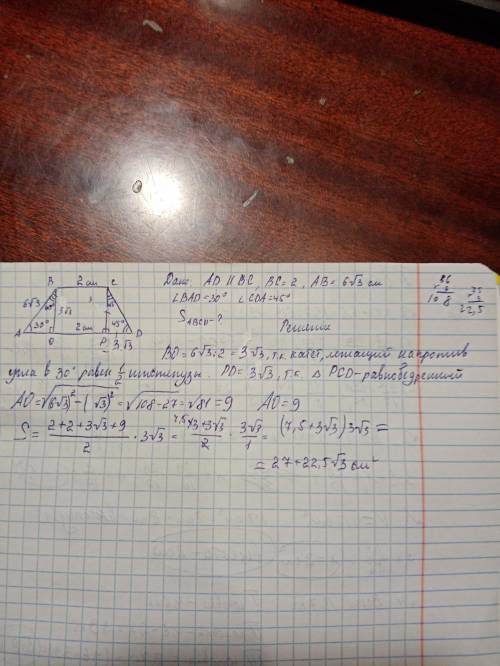 B 2 см C
6√3 3√3
A 30° 2 см 45° D
O P 3√3
Дано: AD || BC, BC = 2, AB = 6√3 см
∠BAD = 30° ∠CDA = 45°
S ABCD - ?
Решение
BO = 6√3 : 2 = 3√3, т.к. катет, лежащий напротив
угла в 30° равен 1/2 гипотенузы. PD = 3√3, т.к. △ PCD - равнобедренный
AO = √(6√3)² - (√3)² = √108 - 27 = √81 = 9 AO = 9
S = 2 + 2 + 3√3 + 9 / 2 · 3√3 = 3 + 3√3 / 2 · 3√3 / 1 = (7,5 + 3√3) 3√3 =
= 27 + 22,5√3 см²
36
108
22,5